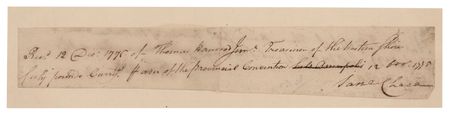 Recd. 12 Decr 1775 of Thomas Harwood Junr. Treasurer of the Western Shore
forty pounds Currt. of the Provincial Convention 12 1775
Saml Chase